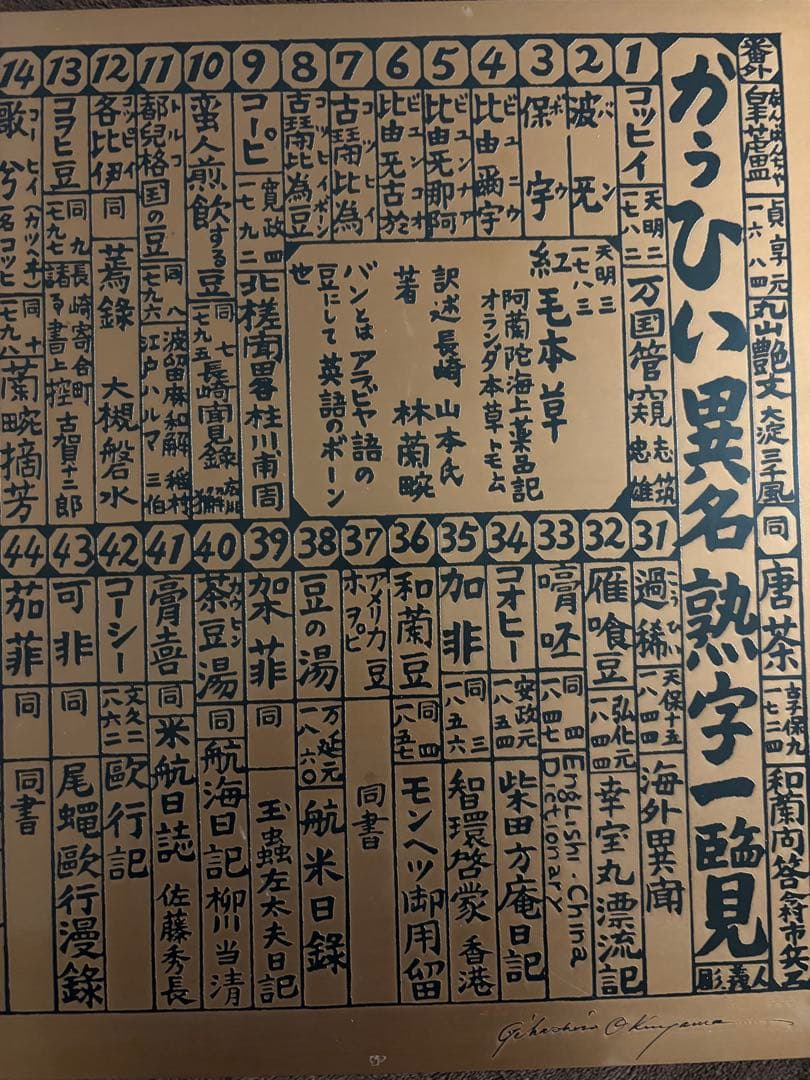 かうひい異名熟字一覧
彫義人
番外
なんばんちゃ
皐蘆
貞享元
一六八四
丸山艶文
大淀三千風
同
唐茶
享保九
一七二四
和蘭問答
今村市兵エ
1
コッヒイ
天明二
一七八二
万国管窺
志筑忠雄
2
バン
波旡
3
ボウ
保宇
4
ビュニウ
比由爾宇
5
ビュンナア
比由旡那阿
6
ビュンコオ
比由旡古於
7
コツヒイ
古闘比為
8
コツヒイボーン
古闘比為豆
天明三
一七八三
紅毛本草
阿蘭陀海上薬品記
オランダ本草トモム
訳述 長崎 山本氏
著 林蘭畹
バンとはアラビヤ語の
豆にして英語のボーン
也
9
コーヒ
寛政四
一七九二
北槎聞畧
桂川甫周
10
蛮人煎飲する豆
同七
一七九五
長崎聞見録
11
トルコ
都兒格国の豆
同八
一七九六
波留麻和解
江戸ハルマ
稲村三伯
12
コッピイ
各比伊
同
蔫録
大槻磐水
13
コヲヒ豆
同九
一七九七
長崎寄合町
諸る書上控
古賀十二郎
14
コーヒイ
歌兮
(カツヘヰ)
一名コッヒ
同十
一七九八
蘭畹摘芳
31
こうひい
過稀
天保十五
一八四四
海外異聞
32
雁喰豆
弘化元
一八四四
幸宝丸漂流記
33
膏呸
同四
一八四七
English-China
Dictionary
34
コオヒー
安政元
一八五四
柴田方庵日記
35
加非
同三
一八五六
智環啓蒙
香港
36
和蘭豆
同四
一八五七
モンヘツ御用留
37
アメリカ豆
ホヲピ
同書
38
豆の湯
万延元
一八六〇
航米日録
39
架菲
同
玉蟲左太夫日記
40
カウヒン
茶豆湯
同
航海日記
柳川当清
41
膏喜
同
米航日誌
佐藤秀長
42
コーシー
文久二
一八六二
欧行記
43
可非
同
尾蠅欧行漫録
44
茄菲
同
同書